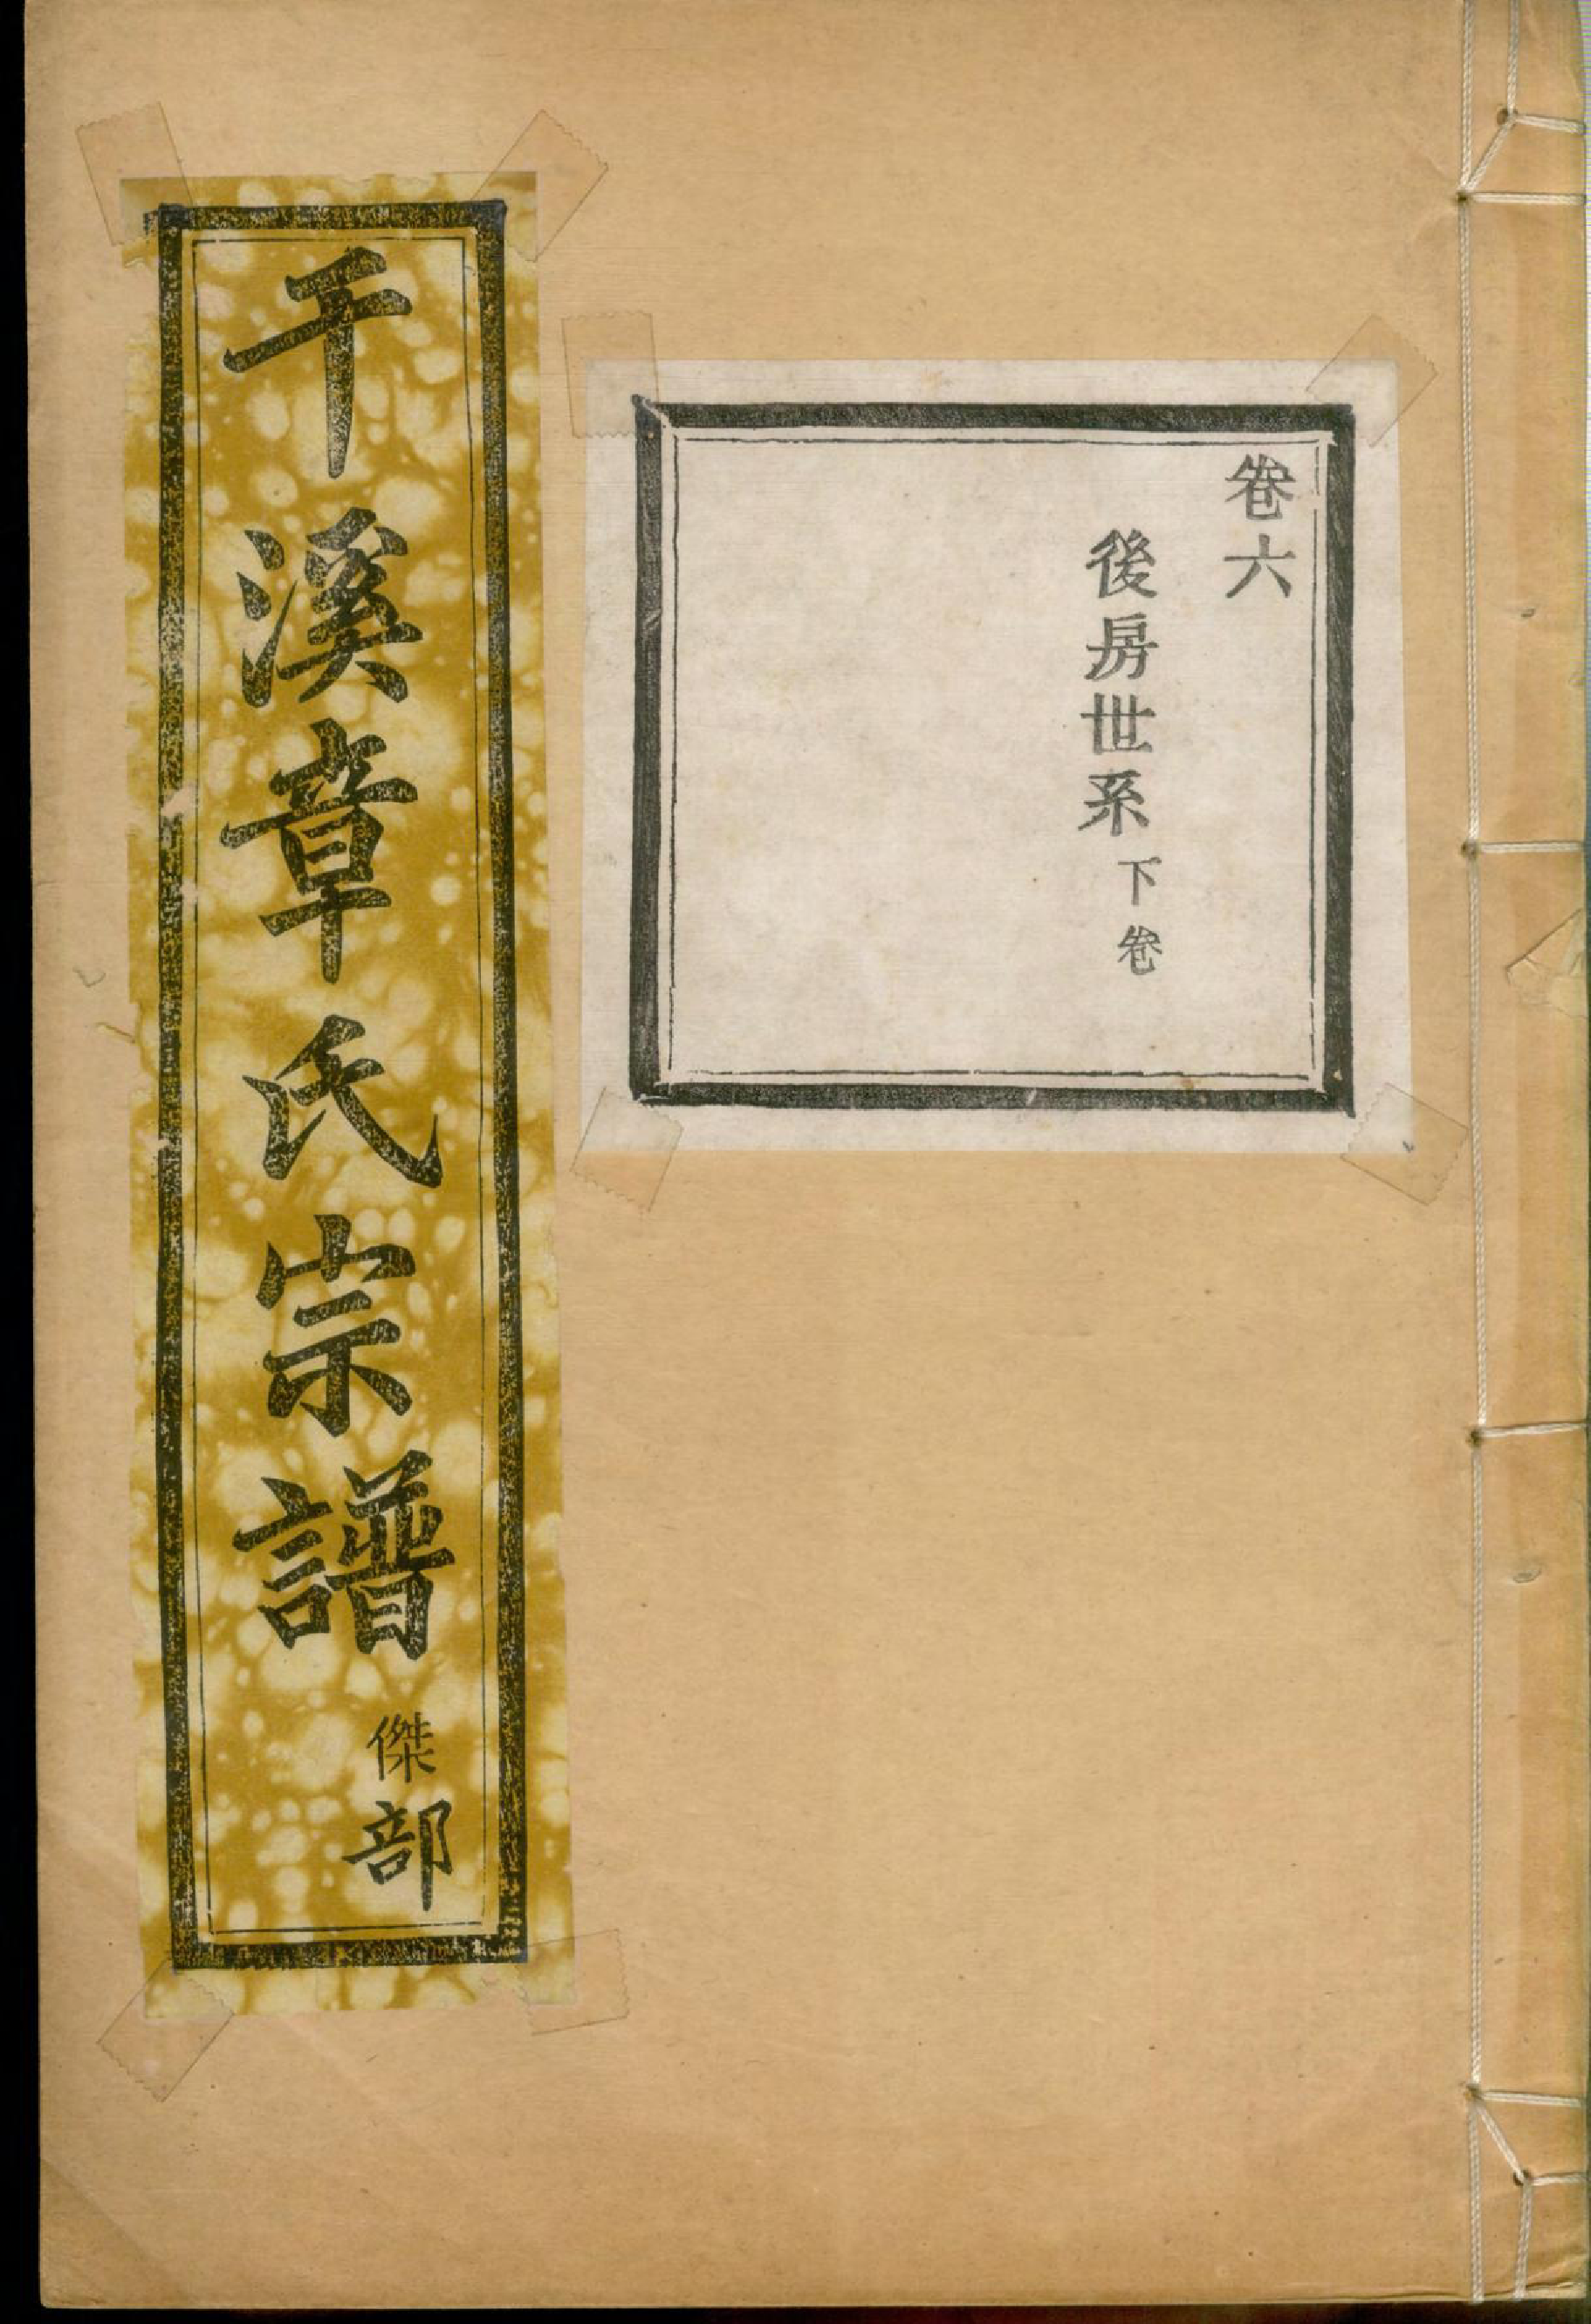 卷六
後房世系下卷
干溪章氏宗譜
傑部